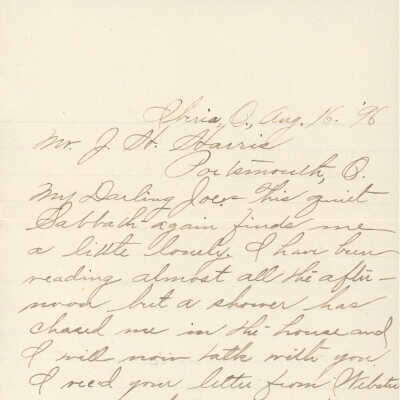 Iberia, O., Aug. 16. '96
Mr. J. W. Harris
Portsmouth, O.
My Darling Joe:- This quiet
Sabbath again finds me
a little lonely. I have been
reading almost all the after-
noon but a shower has
chased me in the house and
I will now talk with you
I rec'd your letter from Webster